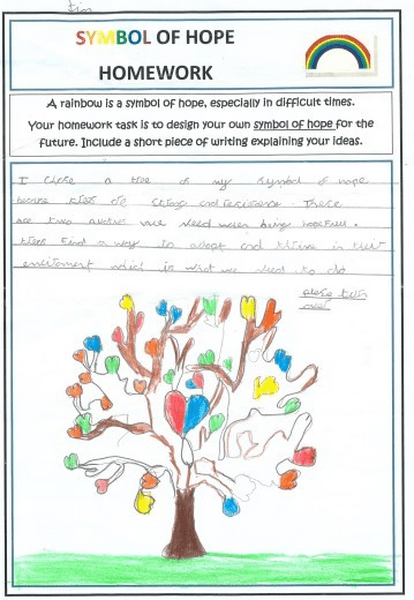 SYMBOL OF HOPE
HOMEWORK
A rainbow is a symbol of hope, especially in difficult times.
Your homework task is to design your own symbol of hope for the
future. Include a short piece of writing explaining your ideas.
I chose a tree as my symbol of hope
because trees are strong and resistance. These
are two qualities we need when being hopefull.
trees find a way to adapt and thrive in their
enviroment which is what we need to do
please turn
over